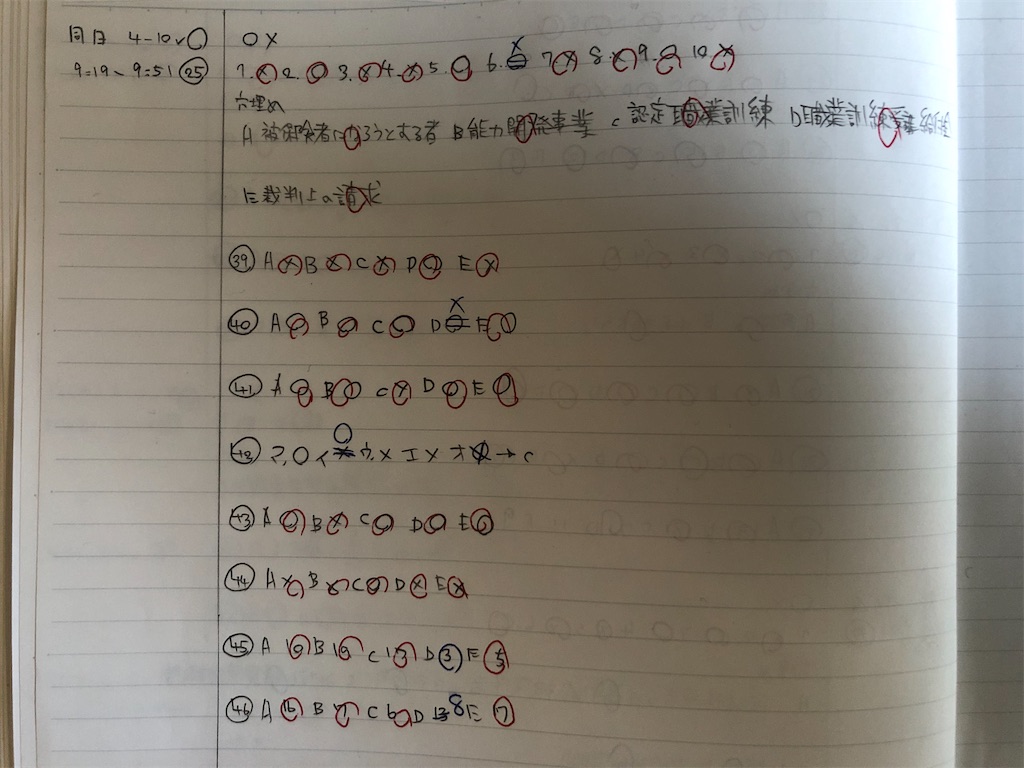 同日 4-10 ✓○ ○×
9=19~9=51 ㉕ 1.× 2.○ 3.× 4.× 5.○ 6.× 7.× 8.× 9.○ 10.×
穴埋め
A 被保険者になろうとする者 B 能力開発事業 C 認定職業訓練 D 職業訓練受講給付金
E 裁判上の請求
㊴ A × B × C × D ○ E ×
㊵ A ○ B ○ C ○ D × E ○
㊶ A ○ B ○ C × D ○ E ○
㊷ ア.○ イ ○ ウ.× エ × オ → c
㊸ A ○ B × C ○ D ○ E ○
㊹ A × B × C ○ D × E ×
㊺ A B C D ③ E
㊻ A 16 B C D 8 E 7